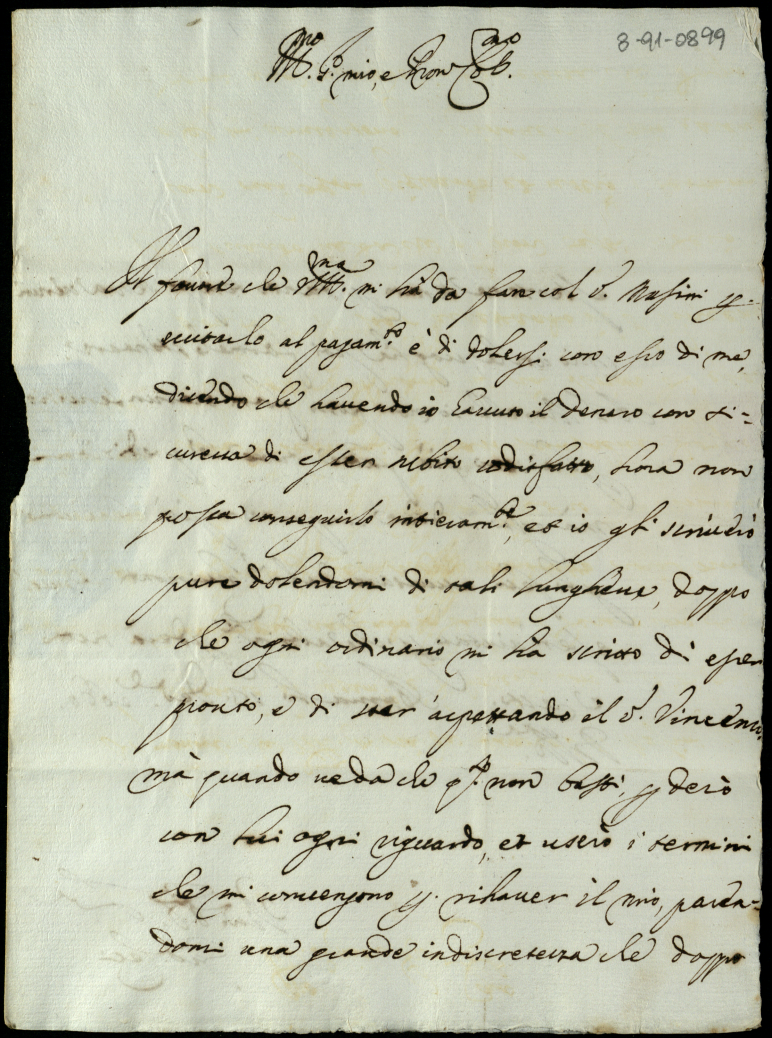 8-91-0899
Ill.mo S.r mio, e Pron Col.mo
Il favore che V.S. Ill.ma mi hà da fare col S.r Masini p.
eccitarlo al pagam.to è di dolersi con esso di me,
dicendo che havendo io scusso il denaro con si-
curezza di esser subito sodisfatto, hora non
possa conseguirlo intieram.te, et io gli scriverò
pure dolendomi di tali lunghezze, doppo
che ogni ordinario mi hà scritto di esser
pronto, e di star aspettando il S.r Vincenzo,
mà quando veda che q.to non basti, p derò
con lui ogni riguardo, et userò i termini
che mi convengono p. rihaver il mio, paren-
domi una grande indiscretezza che doppo